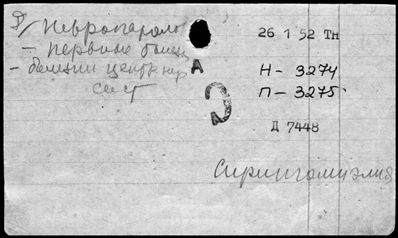 Невропатоло
26 1 52 Тн
– первые
– болезни центр нер
А
Н – 3274
сист
П – 3275
Э
Д 7448
Сирингомиэлия